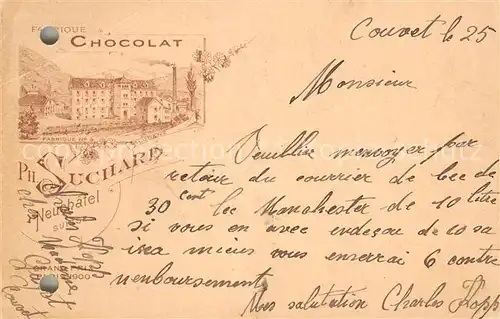 FABRIQUE
CHOCOLAT
FABRIQUE
PH. SUCHARD
Neuchâtel
SUISSE
GRAND PRIX
PARIS 1900
Couvet le 25
Monsieur
Veuillez m'envoyer par
retour du courrier de bec de
30 cent les Manchester de 10 litre
si vous en avec de 10 sa
ira mieus vous enserrai 6 contre
renboursement
Mes salutation Charles Kopp
Charles Kopp
chez
Couvet